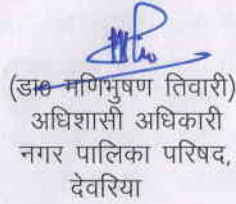 (डा० मणिभुषण तिवारी)
अधिशासी अधिकारी
नगर पालिका परिषद,
देवरिया